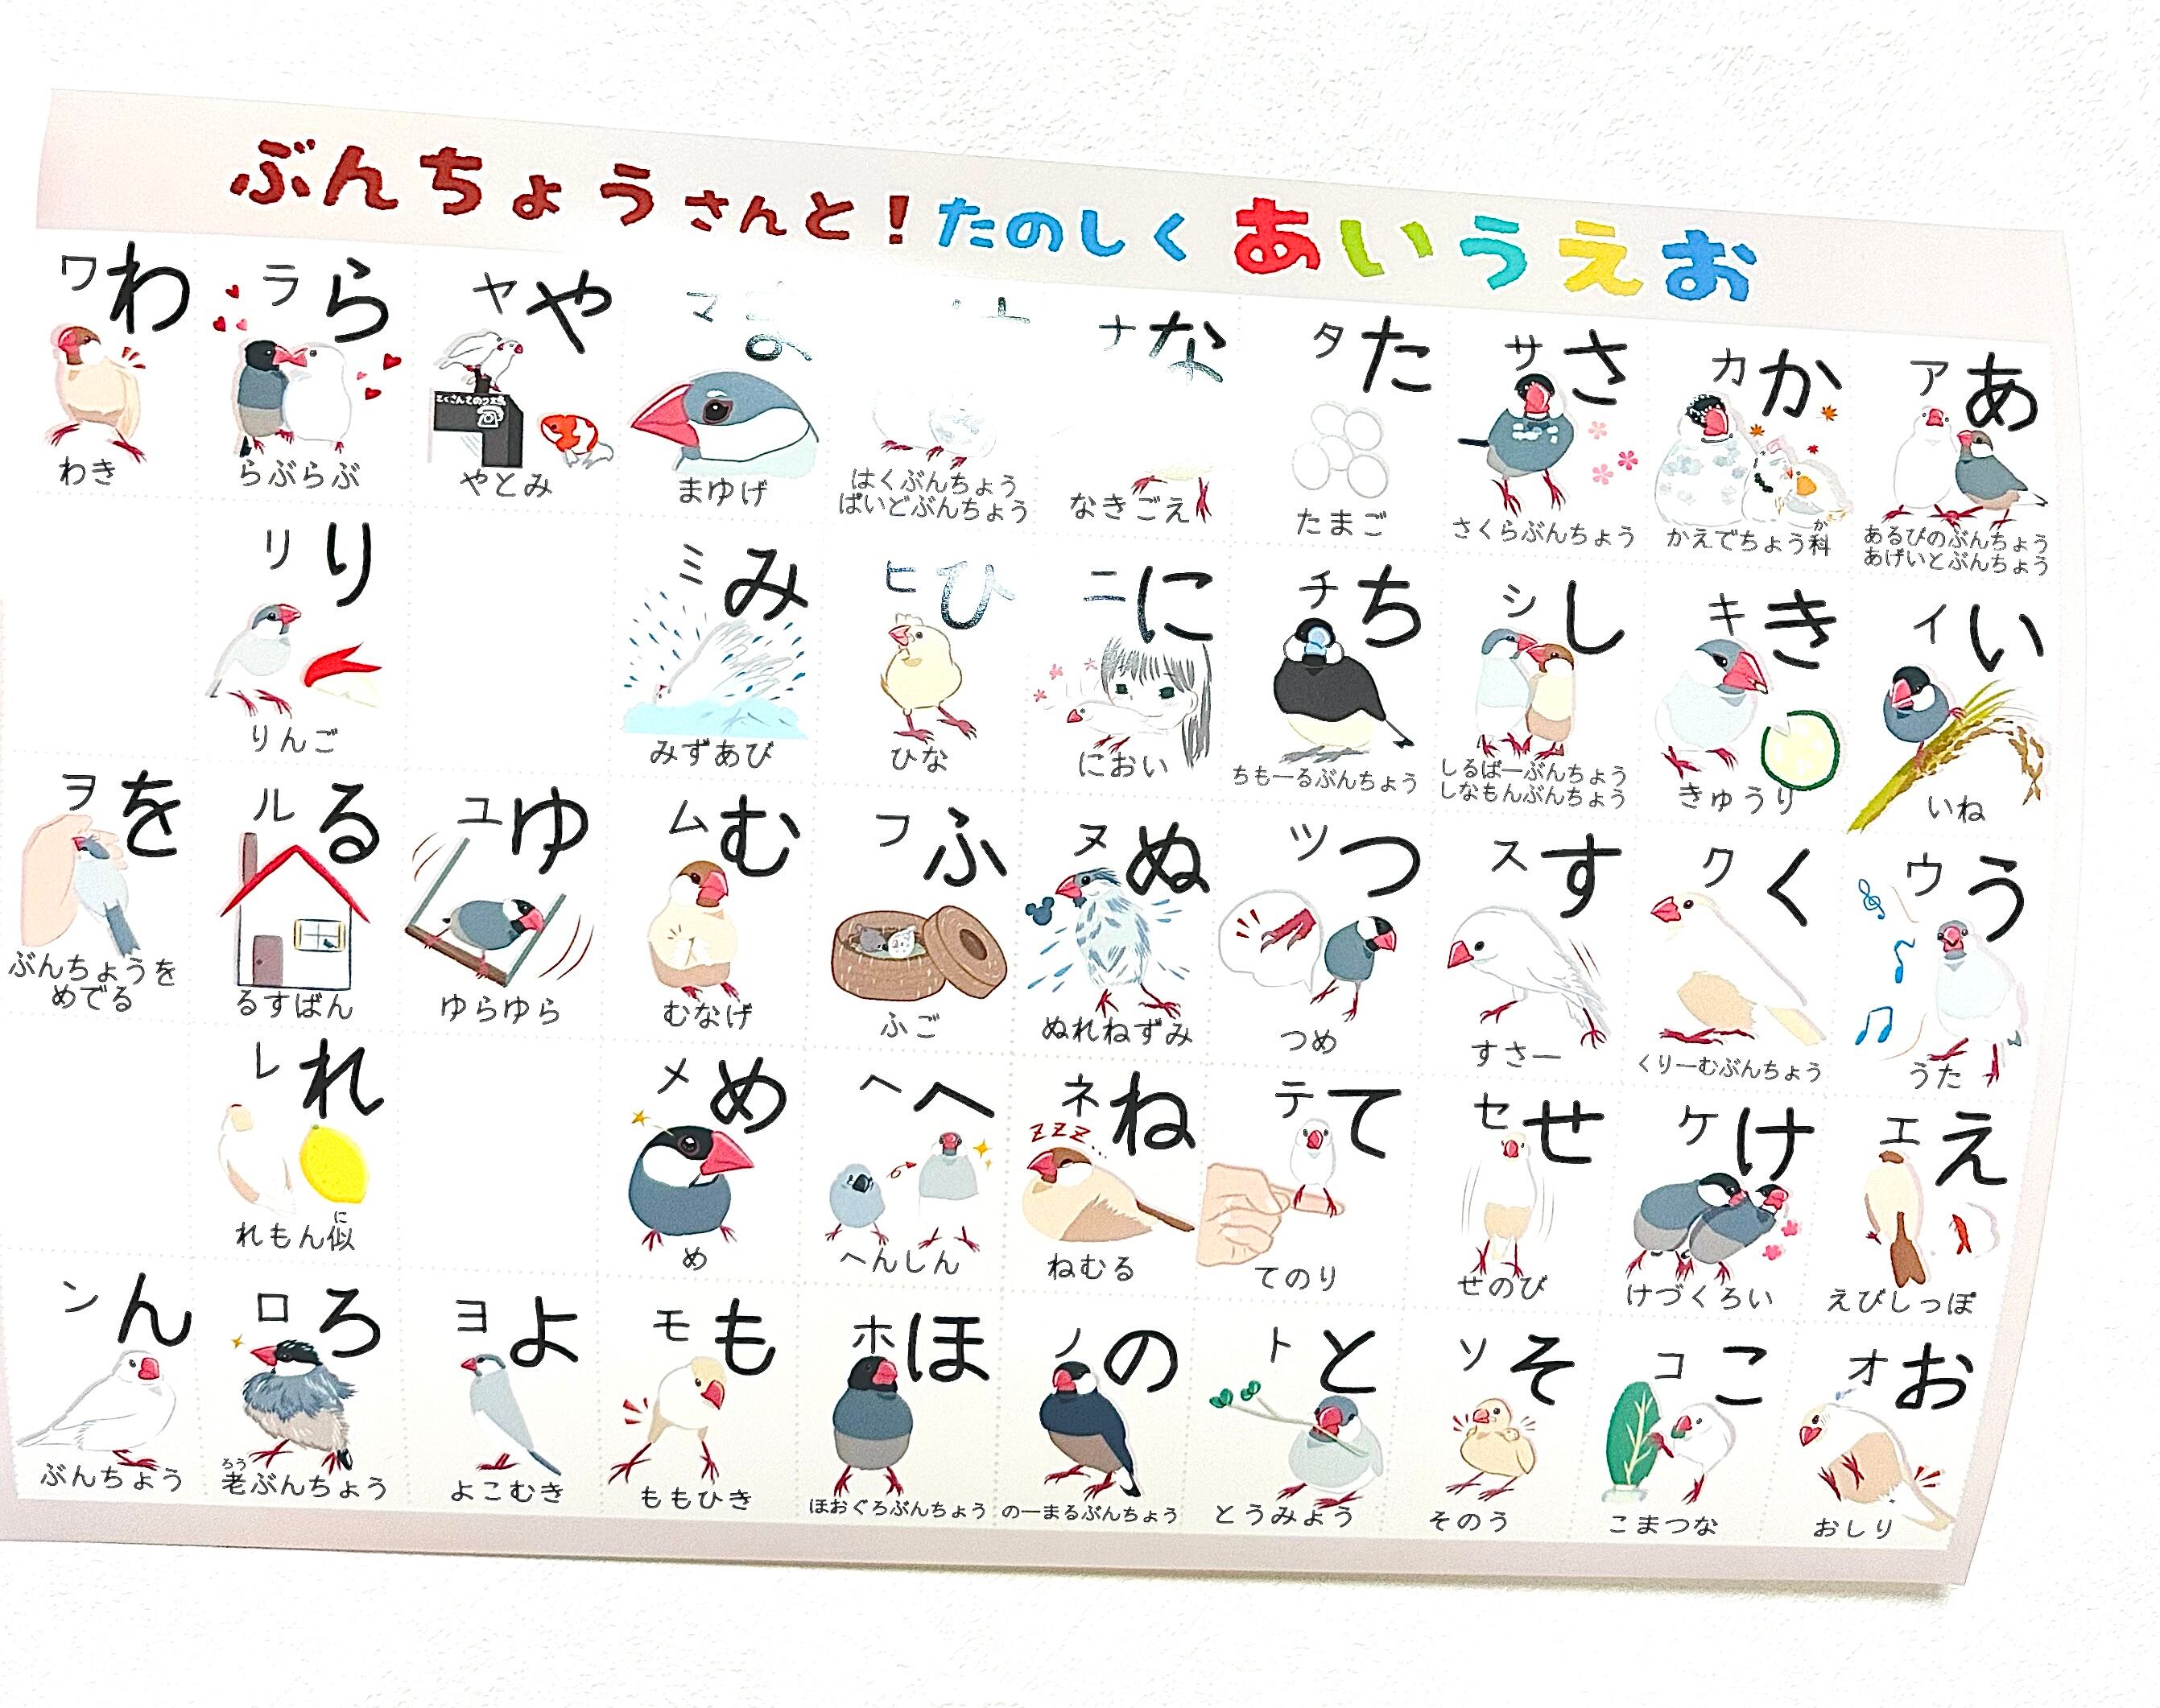 ぶんちょうさんと！たのしくあいうえお
あ ア
あるびのぶんちょう
あげいとぶんちょう
い イ
いね
う ウ
うた
え エ
えびしっぽ
お オ
おしり
か カ
かえでちょう科
か
き キ
きゅうり
く ク
くりーむぶんちょう
け ケ
けづくろい
こ コ
こまつな
さ サ
さくらぶんちょう
し シ
しるばーぶんちょう
しなもんぶんちょう
す ス
すさー
せ セ
せのび
そ ソ
そのう
た タ
たまご
ち チ
ちもーるぶんちょう
つ ツ
つめ
て テ
てのり
と ト
とうみょう
な ナ
なきごえ
に ニ
におい
ぬ ヌ
ぬれねずみ
ね ネ
zzz...
ねむる
の ノ
のーまるぶんちょう
はくぶんちょう
ぱいどぶんちょう
ひ ヒ
ひな
ふ フ
ふご
へ ヘ
へんしん
ほ ホ
ほおぐろぶんちょう
ま マ
まゆげ
み ミ
みずあび
む ム
むなげ
め メ
め
も モ
ももひき
や ヤ
やとみ
ゆ ユ
ゆらゆら
よ ヨ
よこむき
ら ラ
らぶらぶ
り リ
りんご
る ル
るすばん
れ レ
れもん似
に
ろ ロ
老ぶんちょう
ろう
わ ワ
わき
を ヲ
ぶんちょうを
めでる
ん ン
ぶんちょう